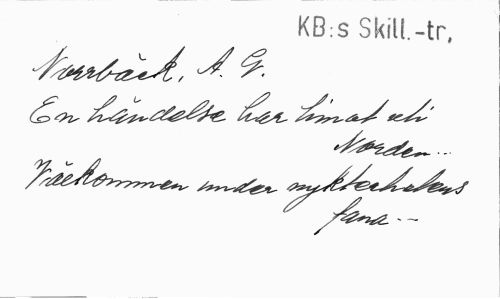 KB:s Skill.-tr,
Norrbäck, A. G.
En händelse har timat uti
Norden...
Välkommen under nykterhetens
fana --